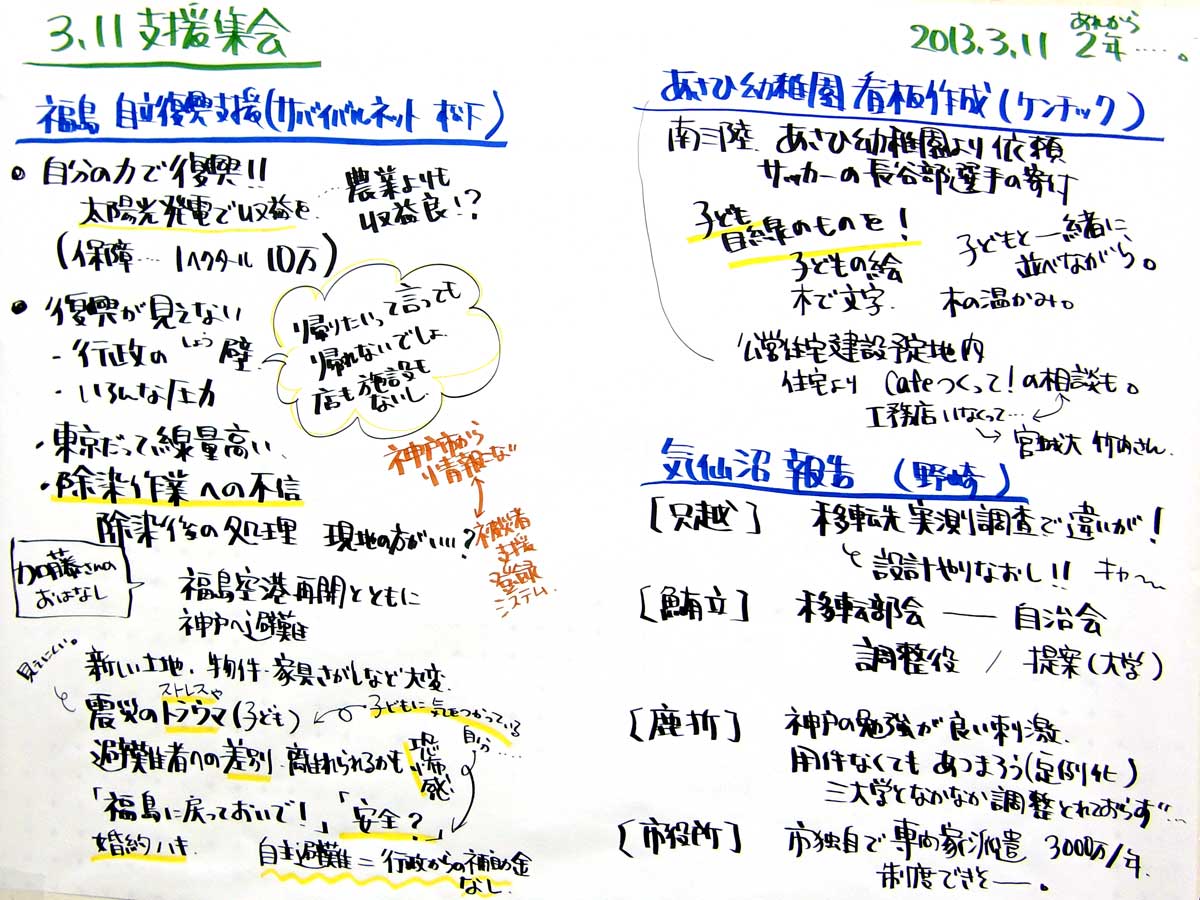 3.11 支援集会
2013.3.11 あれから 2年……。
福島 自立復興支援(サバイバルネット 松下)
• 自分の力で復興!!
太陽光発電で収益を
…… 農業よりも
収益良!?
(保障…1ヘクタール 10万)
• 復興が見えない
- 行政の しょう壁
・いろんな圧力
帰りたいって言っても
帰れないでしょ
店も施設も
ないし.
・東京だって線量高い
・除染作業への不信
除染後の処理 現地の方がいい?
神戸市から
情報こな
被災者
支援
登録
システム.
加藤さんの
おはなし
福島空港再開とともに
神戸へ避難
新しい土地・物件・家具さがしなど大変.
見えにくい.
ストレスや
震災のトラウマ(子ども)
子どもに気をつかっている
自分……
避難者への差別 離れられるかも
恐怖感
「福島に戻っておいで!」「安全?」
婚約ハキ
自主避難=行政からの補助金
なし.
あさひ幼稚園 看板作成(ケンチック)
南三陸 あさひ幼稚園より依頼
サッカーの長谷部選手の寄付
子ども
目線のものを!
子どもの絵
木で文字. 木の温かみ。
子どもと一緒に
並べながら。
公営住宅建設予定地内
住宅より Cafeつくって!の相談も。
工務店いなくって…
宮城大 竹内さん
気仙沼 報告 (野崎)
[只越] 移転先実測調査で違いが!
設計やりなおし!! キャ〜
[鮪立] 移転部会 — 自治会
調整役 / 提案(大学)
[鹿折] 神戸の勉強が良い刺激.
用件なくても あつまろう(定例化)
三大学となかなか調整とれておらず…
[市役所] 市独自で専門家派遣 3000万/年
制度できたー。